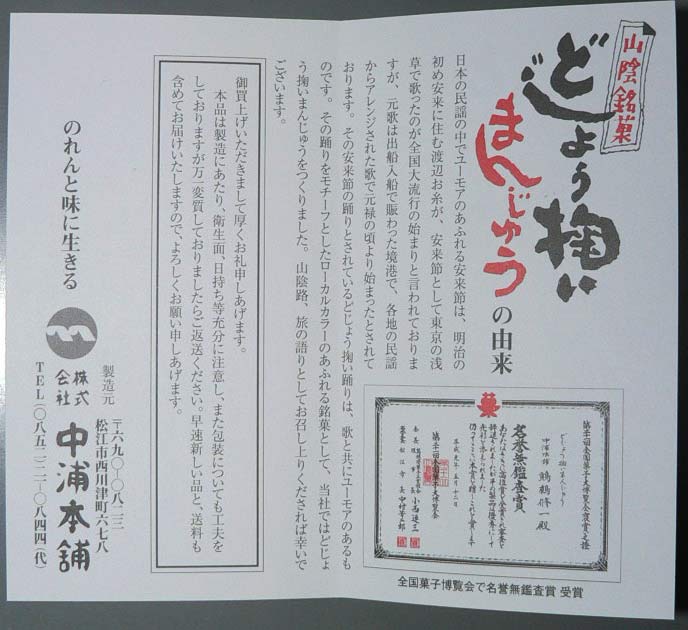 山陰銘菓
どじょう掬い
まんじゅう
の由来
日本の民謡の中でユーモアのあふれる安来節は、明治の
初め安来に住む渡辺お糸が、安来節として東京の浅
草で歌ったのが全国大流行の始まりと言われておりま
すが、元歌は出船入船で賑わった境港で、各地の民謡
からアレンジされた歌で元禄の頃より始まったとされて
おります。その安来節の踊りとされているどじょう掬い踊りは、歌と共にユーモアのあるも
のです。その踊りをモチーフとしたローカルカラーのあふれる銘菓として、当社ではどじょ
う掬いまんじゅうをつくりました。山陰路、旅の語りとしてお召し上りくだされば幸いで
ございます。
菓
第廿一回全国菓子大博覧会褒賞之證
どじょう掬いまんじゅう
中浦本舗
修一殿
名誉無鑑査賞
平成元年五月十二日
第廿一回全国菓子大博覧会
全国菓子博覧会で名誉無鑑査賞 受賞
御買上げいただきまして厚くお礼申しあげます。
本品は製造にあたり、衛生面、日持ち等充分に注意し、また包装についても工夫を
しておりますが万一変質しておりましたらご返送ください。早速新しい品と、送料も
含めてお届けいたしますので、よろしくお願い申しあげます。
のれんと味に生きる
製造元
〒六九〇-〇八二三
松江市西川津町六七八
株式会社 中浦本舗
TEL(〇八五二)二一-〇八四四(代)